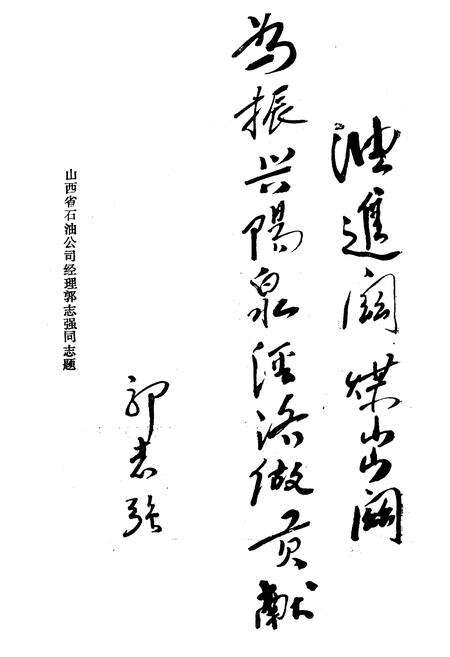 油進関煤出関
為振兴陽泉经济做贡献
郭志强
山西省石油公司经理郭志强同志题